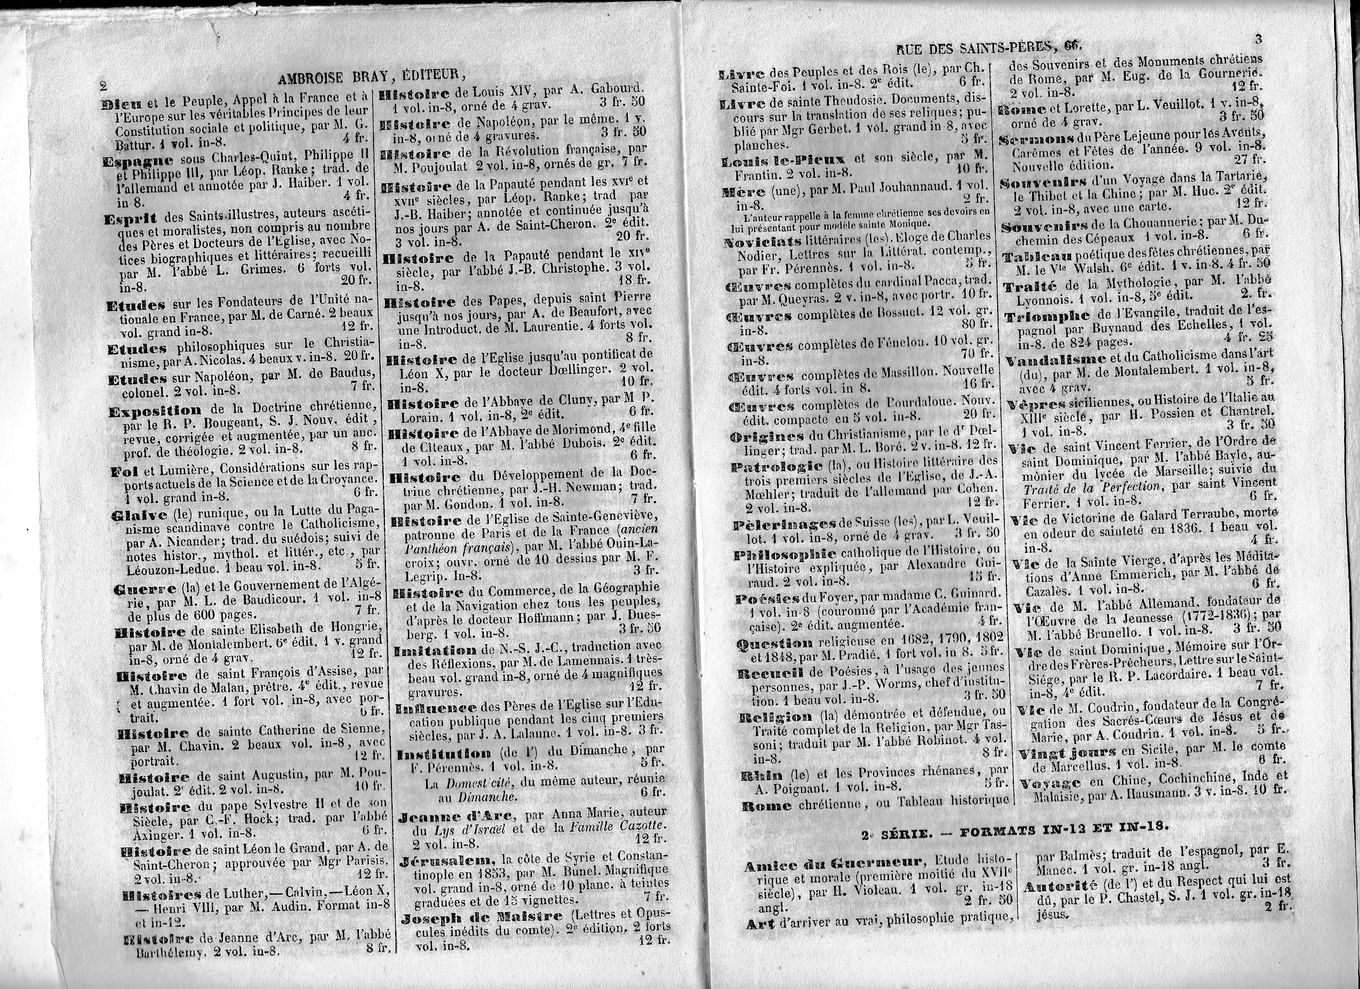 2
AMBROISE BRAY, ÉDITEUR,
Dieu et le Peuple, Appel à la France et à
l'Europe sur les véritables Principes de leur
Constitution sociale et politique, par M. G.
Battur. 1 vol. in-8. 4 fr.
Espagne sous Charles-Quint, Philippe II
et Philippe III, par Léop. Ranke; trad. de
l'allemand et annotée par J. Haiber. 1 vol.
in 8. 4 fr.
Esprit des Saints illustres, auteurs ascéti-
ques et moralistes, non compris au nombre
des Pères et Docteurs de l'Eglise, avec No-
tices biographiques et littéraires; recueilli
par M. l'abbé L. Grimes. 6 forts vol.
in-8. 20 fr.
Etudes sur les Fondateurs de l'Unité na-
tionale en France, par M. de Carné. 2 beaux
vol. grand in-8. 12 fr.
Etudes philosophiques sur le Christia-
nisme, par A. Nicolas. 4 beaux v. in-8. 20 fr.
Etudes sur Napoléon, par M. de Baudus,
colonel. 2 vol. in-8. 7 fr.
Exposition de la Doctrine chrétienne,
par le R. P. Bougeant, S. J. Nouv. édit,
revue, corrigée et augmentée, par un anc.
prof. de théologie. 2 vol. in-8. 8 fr.
Foi et Lumière, Considérations sur les rap-
ports actuels de la Science et de la Croyance.
1 vol. grand in-8. 6 fr.
Glaive (le) runique, ou la Lutte du Paga-
nisme scandinave contre le Catholicisme,
par A. Nicander; trad. du suédois; suivi de
notes histor., mythol. et littér., etc., par
Léouzon-Leduc. 1 beau vol. in-8. 5 fr.
Guerre (la) et le Gouvernement de l'Algé-
rie, par M. L. de Baudicour. 1 vol. in-8
de plus de 600 pages. 7 fr.
Histoire de sainte Elisabeth de Hongrie,
par M. de Montalembert. 6e édit. 1 v. grand
in-8, orné de 4 grav. 12 fr.
Histoire de saint François d'Assise, par
M. Chavin de Malan, prêtre. 4e édit., revue
et augmentée. 1 fort vol. in-8, avec por-
trait. 6 fr.
Histoire de sainte Catherine de Sienne,
par M. Chavin. 2 beaux vol. in-8, avec
portrait. 12 fr.
Histoire de saint Augustin, par M. Pou-
joulat. 2e édit. 2 vol. in-8. 10 fr.
Histoire du pape Sylvestre II et de son
Siècle, par C.-F. Hock; trad. par l'abbé
Axinger. 1 vol. in-8. 6 fr.
Histoire de saint Léon le Grand, par A. de
Saint-Cheron; approuvée par Mgr Parisis.
2 vol. in-8. 12 fr.
Histoires de Luther,—Calvin,—Léon X,
— Henri VIII, par M. Audin. Format in-8
et in-12.
Histoire de Jeanne d'Arc, par M. l'abbé
Barthélemy. 2 vol. in-8. 8 fr.
Histoire de Louis XIV, par A. Gabourd.
1 vol. in-8, orné de 4 grav. 3 fr. 50
Histoire de Napoléon, par le même. 1 v.
in-8, orné de 4 gravures. 3 fr. 50
Histoire de la Révolution française, par
M. Poujoulat 2 vol. in-8, ornés de gr. 7 fr.
Histoire de la Papauté pendant les XVIe et
XVIIe siècles, par Léop. Ranke; trad par
J.-B. Haiber; annotée et continuée jusqu'à
nos jours par A. de Saint-Cheron. 2e édit.
3 vol. in-8. 20 fr.
Histoire de la Papauté pendant le XIVe
siècle, par l'abbé J.-B. Christophe. 3 vol.
in-8. 18 fr.
Histoire des Papes, depuis saint Pierre
jusqu'à nos jours, par A. de Beaufort, avec
une Introduct. de M. Laurentie. 4 forts vol.
in-8. 8 fr.
Histoire de l'Eglise jusqu'au pontificat de
Léon X, par le docteur Dœllinger. 2 vol.
in-8. 10 fr.
Histoire de l'Abbaye de Cluny, par M P.
Lorain. 1 vol. in-8, 2e édit. 6 fr.
Histoire de l'Abbaye de Morimond, 4e fille
de Cîteaux, par M. l'abbé Dubois. 2e édit.
1 vol. in-8. 6 fr.
Histoire du Développement de la Doc-
trine chrétienne, par J.-H. Newman; trad.
par M. Gondon. 1 vol. in-8. 7 fr.
Histoire de l'Eglise de Sainte-Geneviève,
patronne de Paris et de la France (ancien
Panthéon français), par M. l'abbé Ouin-La-
croix; ouvr. orné de 10 dessins par M. F.
Legrip. In-8. 3 fr.
Histoire du Commerce, de la Géographie
et de la Navigation chez tous les peuples,
d'après le docteur Hoffmann; par J. Dues-
berg. 1 vol. in-8. 3 fr. 50
Imitation de N.-S. J.-C., traduction avec
des Réflexions, par M. de Lamennais. 1 très-
beau vol. grand in-8, orné de 4 magnifiques
gravures. 12 fr.
Influence des Pères de l'Eglise sur l'Edu-
cation publique pendant les cinq premiers
siècles, par J. A. Lalanne. 1 vol. in-8. 3 fr.
Institution (de l') du Dimanche, par
F. Pérennès. 1 vol. in-8. 5 fr.
La Domesticité, du même auteur, réunie
au Dimanche. 6 fr.
Jeanne d'Arc, par Anna Marie, auteur
du Lys d'Israël et de la Famille Cazotte.
2 vol. in-8. 12 fr.
Jérusalem, la côte de Syrie et Constan-
tinople en 1853, par M. Bunel. Magnifique
vol. grand in-8, orné de 10 planc. à teintes
graduées et de 15 vignettes. 7 fr.
Joseph de Maistre (Lettres et Opus-
cules inédits du comte). 2e édition. 2 forts
vol. in-8. 12 fr.
RUE DES SAINTS-PÈRES, 66.
3
Livre des Peuples et des Rois (le), par Ch.
Sainte-Foi. 1 vol. in-8. 2e édit. 6 fr.
Livre de sainte Theudosie. Documents, dis-
cours sur la translation de ses reliques; pu-
blié par Mgr Gerbet. 1 vol. grand in 8, avec
planches. 5 fr.
Louis le-Pieux et son siècle, par M.
Frantin. 2 vol. in-8. 10 fr.
Mère (une), par M. Paul Jouhannaud. 1 vol.
in-8. 2 fr.
L'auteur rappelle à la femme chrétienne ses devoirs en
lui présentant pour modèle sainte Monique.
Noviciats littéraires (les). Eloge de Charles
Nodier, Lettres sur la Littérat. contemp.,
par Fr. Pérennès. 1 vol. in-8. 5 fr.
Œuvres complètes du cardinal Pacca, trad.
par M. Queyras. 2 v. in-8, avec portr. 10 fr.
Œuvres complètes de Bossuet. 12 vol. gr.
in-8. 80 fr.
Œuvres complètes de Fénelon. 10 vol. gr.
in-8. 70 fr.
Œuvres complètes de Massillon. Nouvelle
édit. 4 forts vol. in 8. 16 fr.
Œuvres complètes de Bourdaloue. Nouv.
édit. compacte en 5 vol. in-8. 20 fr.
Origines du Christianisme, par le dr Dœl-
linger; trad. par M. L. Boré. 2 v. in-8. 12 fr.
Patrologie (la), ou Histoire littéraire des
trois premiers siècles de l'Eglise, de J.-A.
Mœhler; traduit de l'allemand par Cohen.
2 vol. in-8. 12 fr.
Pèlerinages de Suisse (les), par L. Veuil-
lot. 1 vol. in-8, orné de 4 grav. 3 fr. 50
Philosophie catholique de l'Histoire, ou
l'Histoire expliquée, par Alexandre Gui-
raud. 2 vol. in-8. 15 fr.
Poésies du Foyer, par madame C. Guinard.
1 vol. in-8 (couronné par l'Académie fran-
çaise). 2e édit. augmentée. 4 fr.
Question religieuse en 1682, 1790, 1802
et 1848, par M. Pradié. 1 fort vol. in 8. 5 fr.
Recueil de Poésies, à l'usage des jeunes
personnes, par J.-P. Worms, chef d'institu-
tion. 1 beau vol. in-8. 3 fr. 50
Religion (la) démontrée et défendue, ou
Traité complet de la Religion, par Mgr Tas-
soni; traduit par M. l'abbé Robinot. 4 vol.
in-8. 8 fr.
Rhin (le) et les Provinces rhénanes, par
A. Poignant. 1 vol. in-8. 5 fr.
Rome chrétienne, ou Tableau historique
des Souvenirs et des Monuments chrétiens
de Rome, par M. Eug. de la Gournerie.
2 vol. in-8. 12 fr.
Rome et Lorette, par L. Veuillot. 1 v. in-8,
orné de 4 grav. 3 fr. 50
Sermons du Père Lejeune pour les Avents,
Carêmes et Fêtes de l'année. 9 vol. in-8.
Nouvelle édition. 27 fr.
Souvenirs d'un Voyage dans la Tartarie,
le Thibet et la Chine; par M. Huc. 2e édit.
2 vol. in-8, avec une carte. 12 fr.
Souvenirs de la Chouannerie; par M. Du-
chemin des Cépeaux 1 vol. in-8. 6 fr.
Tableau poétique des fêtes chrétiennes, par
M. le Vte Walsh. 6e édit. 1 v. in-8. 4 fr. 50
Traité de la Mythologie, par M. l'abbé
Lyonnois. 1 vol. in-8, 5e édit. 2. fr.
Triomphe de l'Evangile, traduit de l'es-
pagnol par Buynand des Echelles, 1 vol.
in-8. de 824 pages. 4 fr. 25
Vandalisme et du Catholicisme dans l'art
(du), par M. de Montalembert. 1 vol. in-8,
avec 4 grav. 5 fr.
Vêpres siciliennes, ou Histoire de l'Italie au
XIIIe siècle, par H. Possien et Chantrel.
1 vol. in-8. 3 fr. 50
Vie de saint Vincent Ferrier, de l'Ordre de
saint Dominique, par M. l'abbé Bayle, au-
mônier du lycée de Marseille; suivie du
Traité de la Perfection, par saint Vincent
Ferrier. 1 vol. in-8. 6 fr.
Vie de Victorine de Galard Terraube, morte
en odeur de sainteté en 1836. 1 beau vol.
in-8. 4 fr.
Vie de la Sainte Vierge, d'après les Médita-
tions d'Anne Emmerich, par M. l'abbé de
Cazalès. 1 vol. in-8. 6 fr.
Vie de M. l'abbé Allemand, fondateur de
l'Œuvre de la Jeunesse (1772-1836); par
M. l'abbé Brunello. 1 vol. in-8. 3 fr. 50
Vie de saint Dominique, Mémoire sur l'Or-
dre des Frères-Prêcheurs, Lettre sur le Saint-
Siége, par le R. P. Lacordaire. 1 beau vol.
in-8, 4e édit. 7 fr.
Vie de M. Coudrin, fondateur de la Congré-
gation des Sacrés-Cœurs de Jésus et de
Marie, par A. Coudrin. 1 vol. in-8. 5 fr.
Vingt jours en Sicile, par M. le comte
de Marcellus. 1 vol. in-8. 6 fr.
Voyage en Chine, Cochinchine, Inde et
Malaisie, par A. Hausmann. 3 v. in-8. 10 fr.
2e SÉRIE. — FORMATS IN-12 ET IN-18.
Amice du Guermeur, Etude histo-
rique et morale (première moitié du XVIIe
siècle), par H. Violeau. 1 vol. gr. in-18
angl. 2 fr. 50
Art d'arriver au vrai, philosophie pratique,
par Balmès; traduit de l'espagnol, par E.
Manec. 1 vol. gr. in-18 angl. 3 fr.
Autorité (de l') et du Respect qui lui est
dû, par le P. Chastel, S. J. 1 vol. gr. in-18
jésus. 2 fr.